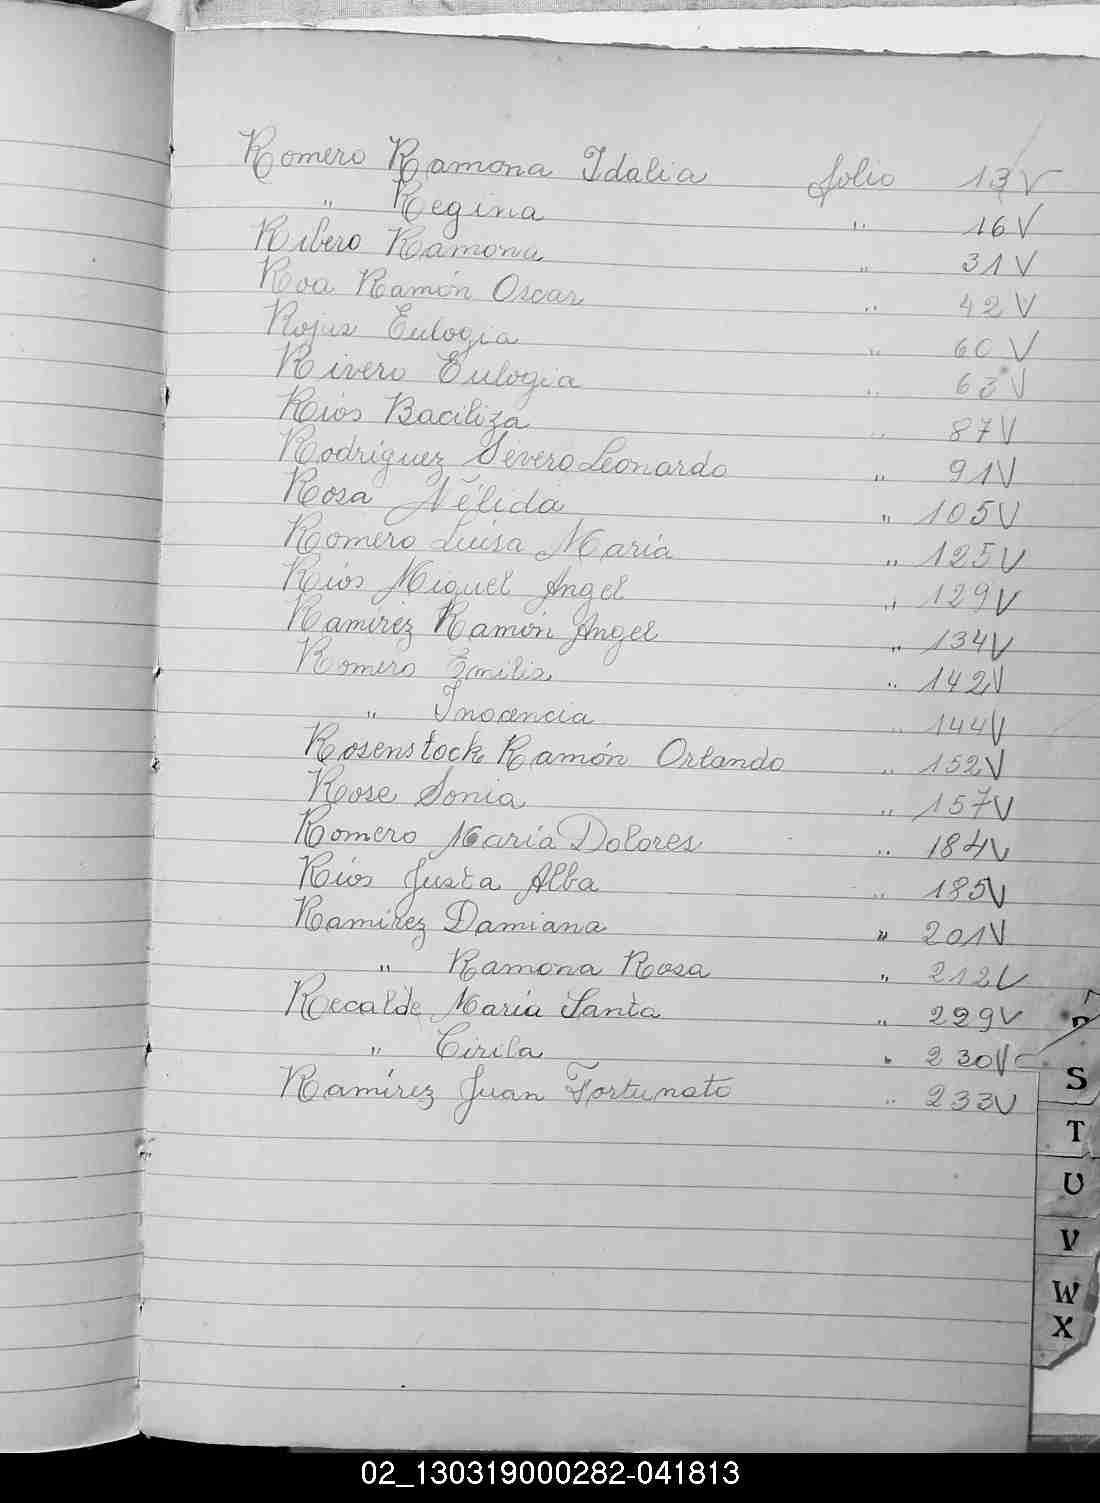 Romero Ramona Idalia folio 13 V
" Regina " 16 V
Ribero Ramona " 31 V
Roa Ramón Oscar " 42 V
Rojas Eulogia " 60 V
Rivero Eulogia " 63 V
Ríos Baciliza " 87 V
Rodríguez Severo Leonardo " 91 V
Rosa Nélida " 105 V
Romero Luisa María " 125 V
Ríos Miguel Angel " 129 V
Ramírez Ramón Angel " 134 V
Romero Emilia " 142 V
" Inocencia " 144 V
Rosenstock Ramón Orlando " 152 V
Rose Sonia " 157 V
Romero María Dolores " 184 V
Ríos Justa Alba " 185 V
Ramírez Damiana " 201 V
" Ramona Rosa " 212 V
Recalde María Santa " 229 V
" Cirila " 230 V
Ramírez Juan Fortunato " 233 V
S
T
U
V
W
X
02_130319000282-041813